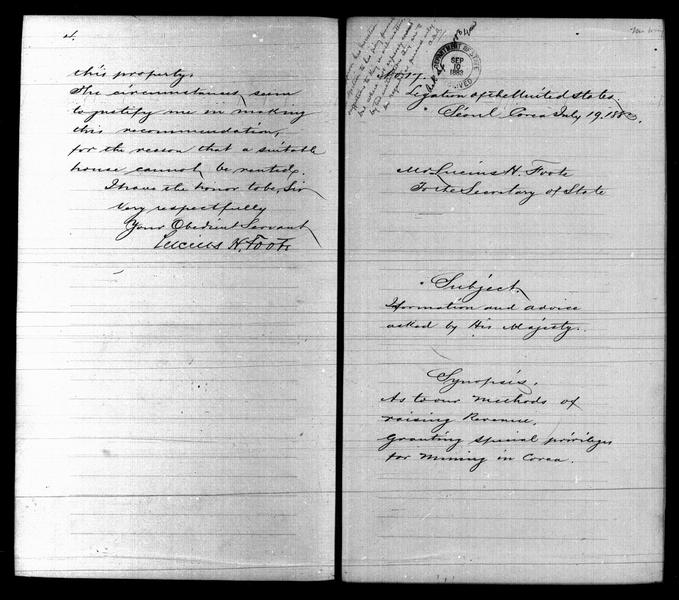 this property.
The circumstances, seem
to justify me in making
this recommendation,
for the reason that a suitable
house cannot, be rented.
I have the honor to be, Sir
Very respectfully
Your Obedient Servant
Lucius H. Foote
DEPARTMENT OF STATE
SEP
10
1883
RECEIVED
No. 17.
Legation of the United States,
Séoul Corea July 19, 1883.
Mr. Lucius H. Foote
To the Secretary of State
Subject.
Information and advice
asked by His Majesty.
Synopsis.
As to our Methods of
raising Revenue,
Granting special privileges
for Mining in Corea.